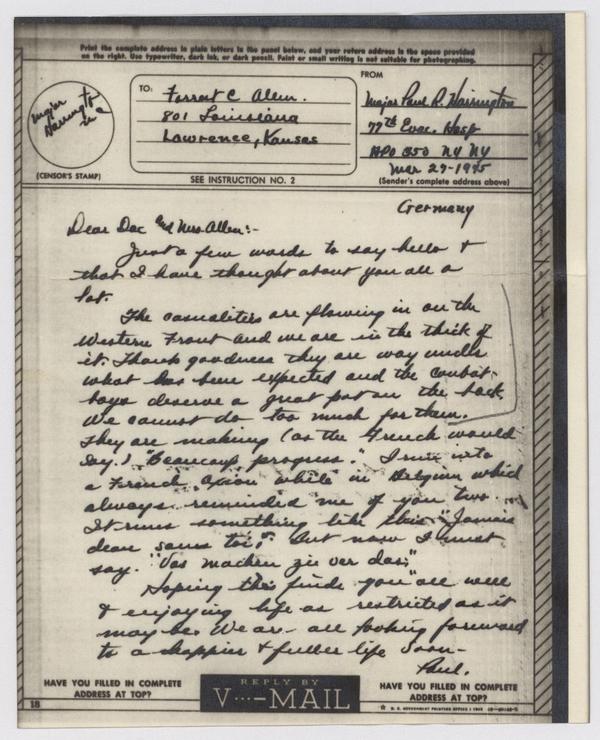 Print the complete address in plain letters in the panel below, and your return address in the space provided
on the right. Use typewriter, dark ink, or dark pencil. Faint or small writing is not suitable for photographing.
FROM
TO:
Forrest C Allen.
801 Louisiana
Lawrence, Kansas
Major Paul R. Harrington
77th Evac. Hosp
APO 350 NY NY
Mar 29-1945
(Sender's complete address above)
Major
Harrington
(CENSOR'S STAMP)
SEE INSTRUCTION NO. 2
Germany
Dear Doc and Mrs Allen:-
Just a few words to say hello &
that I have thought about you all a
lot.
The casualities are flowing in on the
Western Front and we are in the thick of
it. Thank goodness they are way under
what has been expected and the combat
boys deserve a great pat on the back.
We cannot do too much for them.
They are making (as the French would
say.) "Beaucoup progress." I run into
a French axiom while in Belgium which
always reminded me of you two.
It runs something like this "Jamais
dear sans toi". But now I must
say. "Vas machen zie ver das;"
Hoping this finds you all well
& enjoying life as restricted as it
may be. We are all looking forward
to a happier & fuller life soon-
Paul.
HAVE YOU FILLED IN COMPLETE
ADDRESS AT TOP?
REPLY BY
V···—MAIL
HAVE YOU FILLED IN COMPLETE
ADDRESS AT TOP?
18
U. S. GOVERNMENT PRINTING OFFICE